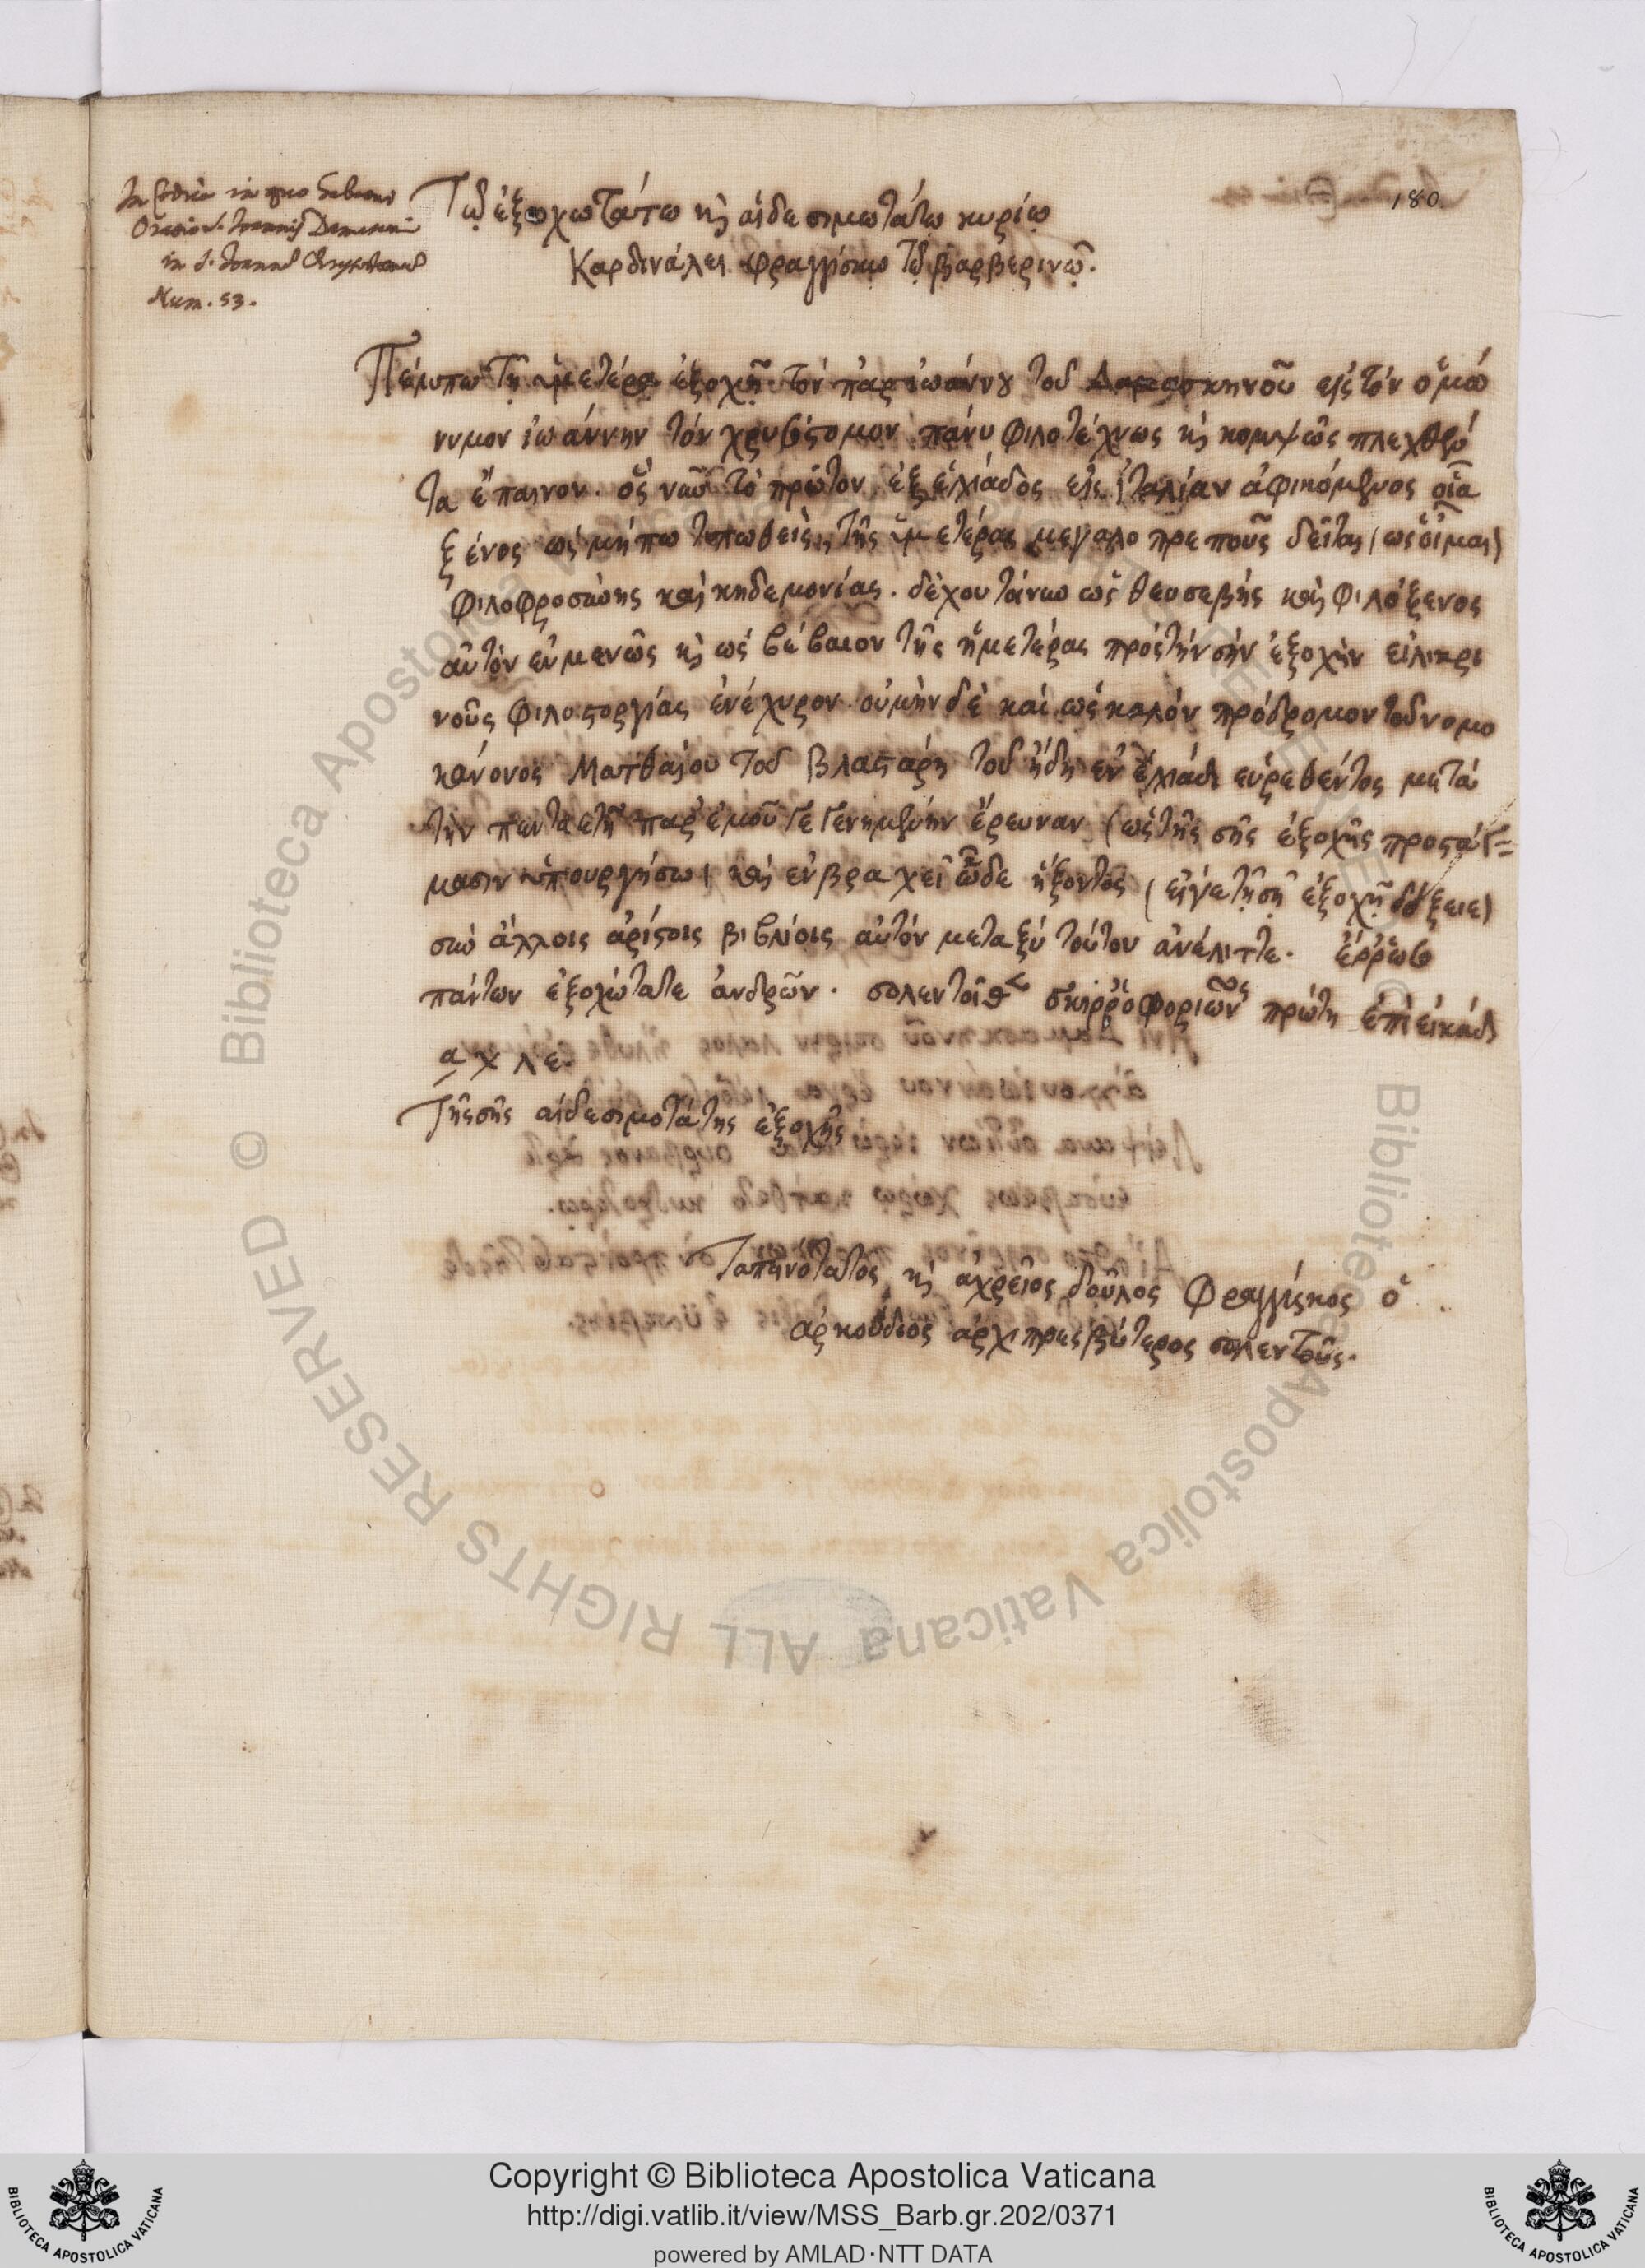 180.
In Codice in quo habetur
Oratio S. Joannis Damasceni
in S. Joannem Chrysostomum
Num. 53.
Τῷ ἐξοχωτάτω κὶ αἰδεσιμωτάτῳ κυρίῳ
Καρδινάλει φραγγίσκῳ τῷ βαρβερινῷ.
Πέμπω τῇ ὑμετέρᾳ ἐξοχῇ τὸν παρ ἰωάννου τοῦ Δαμασκηνοῦ εἰς τὸν ὁμώ
νυμον ἰωάννην τὸν χρυσόστομον πάνυ φιλοτέχνως κὶ κομψῶς πλεχθέν
τα ἔπαινον. ὃς νῦν τὸ πρῶτον ἐξ ἑλλάδος εἰς ἰταλίαν ἀφικόμενος οἷα
ξένος ὡς μήπω τυπωθεὶς, τῆς ὑμετέρας μεγαλοπρεποῦς δεῖται (ὡς οἶμαι)
φιλοφροσύνης καὶ κηδεμονίας. δέχου τοίνυν ὡς θεοσεβὴς καὶ φιλόξενος
αὐτὸν εὐμενῶς κὶ ὡς βέβαιον τῆς ἡμετέρας πρὸς τὴν σὴν ἐξοχὴν εἰλικρι
νοῦς φιλοστοργίας ἐνέχυρον. οὐ μὴν δὲ καὶ ὡς καλὸν πρόδρομον τοῦ νομο
κάνονος Ματθαίου τοῦ βλαστάρη τοῦ ἤδη ἐν ἑλλάδι εὑρεθέντος μετὰ
τὴν πενταετῆ παρ ἐμοῦ γεγενημένην ἔρευναν (ὡς τῆς σῆς ἐξοχῆς προστάγ=
μασιν ὑπουργήσω) καὶ ἐν βραχεῖ ὧδε ἥξοντος (εἴγε τῇ σῇ ἐξοχῇ δόξειε)
σὺν ἄλλοις ἀρίστοις βιβλίοις αὐτὸν μεταξὺ τοῦτον ἀνέλιττε. ἔρρωσο
πάντων ἐξοχώτατε ἀνδρῶν. σολεντόθεν σκιρροφοριῶνος πρώτῃ ἐπὶ εἰκάδι
αχλε.
Τῆς σῆς αἰδεσιμοτάτης ἐξοχῆς
Ταπεινότατος κὶ ἀχρεῖος δοῦλος Φραγγίσκος ὁ
ἀρκούδιος ἀρχιπρεσβύτερος σολεντοῦς.
Copyright © Biblioteca Apostolica Vaticana
http://digi.vatlib.it/view/MSS_Barb.gr.202/0371
powered by AMLAD·NTT DATA
BIBLIOTECA APOSTOLICA VATICANA
BIBLIOTECA APOSTOLICA VATICANA